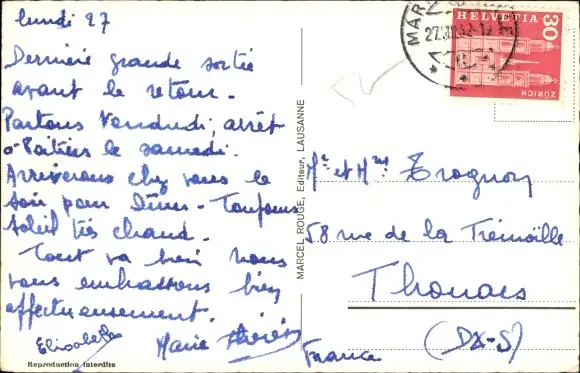 lundi 27
Dernière grande sortie
avant le retour.
Partons Vendredi, arrêt
à Poitiers le samedi.
Arriverons chez vous le
soir pour dîner - Toujours
soleil très chaud.
Tout va bien nous
vous embrassons bien
affectueusement.
Elisabeth Marie Thérèse
Reproduction interdite
MARCEL ROUGE, Editeur, LAUSANNE
HELVETIA
30
ZÜRICH
Mr et Mme Trognon
58 rue de la Trémoïlle
Thouars
(DX-S)
France